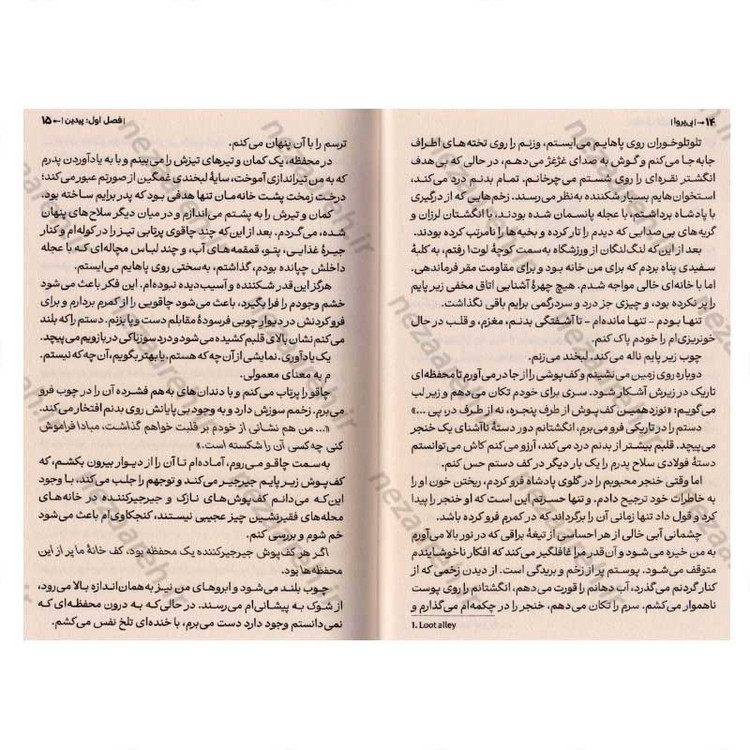 ۱۴ → | بی‌پروا |
تلوتلوخوران روی پاهایم می‌ایستم، وزنم را روی تخته‌های اطراف
جابه‌جا می‌کنم و گوش به صدای غژغژ می‌دهم، در حالی که بی‌هدف
انگشتر نقره‌ای را روی شستم می‌چرخانم. تمام بدنم درد می‌کند،
استخوان‌هایم بسیار شکننده به‌نظر می‌رسند. زخم‌هایی که از درگیری
با پادشاه برداشتم، با عجله پانسمان شده بودند. با انگشتان لرزان و
گریه‌های بی‌صدایی که دیدم را تار کرده و بخیه‌ها را نامرتب کرده بودند.
بعد از این‌که لنگ‌لنگان از ورزشگاه به‌سمت کوچهٔ لوت۱ رفتم، به کلبهٔ
سفیدی پناه بردم که برای من خانه بود و برای مقاومت مقر فرماندهی.
اما با خانه‌ای خالی مواجه شدم. هیچ چهرهٔ آشنایی اتاق مخفی زیر پایم
را پر نکرده بود، و چیزی جز درد و سردرگمی برایم باقی نگذاشت.
تنها بودم - تنها مانده‌ام - تا آشفتگی بدنم، مغزم، و قلب در حال
خونریزی‌ام را خودم پاک کنم.
چوب زیر پایم ناله می‌کند. لبخند می‌زنم.
دوباره روی زمین می‌نشینم و کف‌پوشی را از جا در می‌آورم تا محفظه‌ای
تاریک در زیرش آشکار شود. سری برای خودم تکان می‌دهم و زیر لب
می‌گویم: «نوزدهمین کف‌پوش از طرف پنجره، نه از طرف در، پی ...»
دستم را در تاریکی فرو می‌برم، انگشتانم دور دستهٔ ناآشنای یک خنجر
می‌پیچد. قلبم بیشتر از بدنم درد می‌کند، آرزو می‌کنم کاش می‌توانستم
دستهٔ فولادی سلاح پدرم را یک بار دیگر در کف دستم حس کنم.
اما وقتی خنجر محبوبم را در گلوی پادشاه فرو کردم، ریختن خون او را
به خاطرات خود ترجیح دادم. و تنها حسرتم این است که او خنجر را پیدا
کرد و قول داد تنها زمانی آن را برگرداند که در کمرم فرو کرده باشد.
چشمانی آبی خالی از هر احساسی از تیغهٔ براقی که در نور بالا می‌آورم
به من خیره می‌شود و آن‌قدر مرا غافلگیر می‌کند که افکار ناخوشایندم
متوقف می‌شود. پوستم پر از زخم و بریدگی است. از دیدن زخمی که از
کنار گردنم می‌گذرد، آب دهانم را قورت می‌دهم، انگشتانم را روی پوست
ناهموار می‌کشم. سرم را تکان می‌دهم، خنجر را در چکمه‌ام می‌گذارم و
1. Loot alley
| فصل اول: پیدین | ← ۱۵
ترسم را با آن پنهان می‌کنم.
در محفظه، یک کمان و تیرهای تیزش را می‌بینم و با به یاد آوردن پدرم
که به من تیراندازی آموخت، سایهٔ لبخندی غمگین از صورتم عبور می‌کند؛
درخت زمخت پشت خانه‌مان تنها هدفی بود که پدر برایم ساخته بود.
کمان و تیرش را به پشتم می‌اندازم و در میان دیگر سلاح‌های پنهان
شده، می‌گردم. بعد از این‌که چند چاقوی پرتابی تیز را در کوله‌ام و کنار
جیرهٔ غذایی، پتو، قمقمه‌های آب، و چند لباس مچاله‌ای که با عجله
داخلش چپانده بودم، گذاشتم، به‌سختی روی پاهایم می‌ایستم.
هرگز این‌قدر شکننده و آسیب‌دیده نبوده‌ام. این فکر باعث می‌شود
خشم وجودم را فرا بگیرد، باعث می‌شود چاقویی را از کمرم بردارم و برای
فرو کردنش در دیوار چوبی فرسودهٔ مقابلم دست و پا بزنم. دستم را که بلند
می‌کنم نشان بالای قلبم کشیده می‌شود و درد سوزناکی در بازویم می‌پیچد.
یک یادآوری. نمایشی از آن‌چه که هستم. یا بهتر بگویم، آن‌چه که نیستم.
م به معنای معمولی.
چاقو را پرتاب می‌کنم و با دندان‌های به هم فشرده آن را در چوب فرو
می‌برم. زخمم سوزش دارد و به وجود بی‌پایانش روی بدنم افتخار می‌کند.
«... من هم نشانی از خودم بر قلبت خواهم گذاشت، مبادا فراموش
کنی چه‌کسی آن را شکسته است.»
به‌سمت چاقو می‌روم، آماده‌ام تا آن را از دیوار بیرون بکشم، که
کف‌پوش زیر پایم جیرجیر می‌کند و توجهم را جلب می‌کند. با وجود
این‌که می‌دانم کف‌پوش‌های نازک و جیرجیرکننده در خانه‌های
محله‌های فقیرنشین چیز عجیبی نیستند، کنجکاوی‌ام باعث می‌شود
خم شوم و بررسی کنم.
اگر هر کف‌پوش جیرجیرکننده یک محفظه بود، کف خانهٔ ما پر از این
محفظه‌ها بود.
چوب بلند می‌شود و ابروهای من نیز به همان اندازه بالا می‌رود،
از شوک به پیشانی‌ام می‌رسند. در حالی‌که به درون محفظه‌ای که
نمی‌دانستم وجود دارد دست می‌برم، با خنده‌ای تلخ نفس می‌کشم.
nezaareh.ir